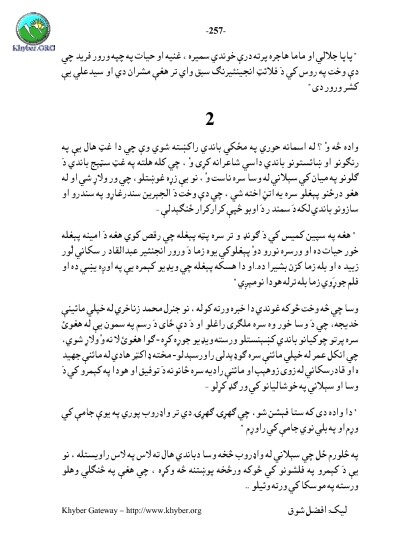 -257-
Khyber.ORG
" پاپا جلالي او ماما هاجره پرته درې خوندي سميره ، غنيه او حيات په چپه ورور فريد چي
دې وخت په روس کي دَ فلائټ انجينئيرنګ سبق واي تر هغې مشران دي او سيد علي يې
کشر ورور دی"
2
واده څه وُ ؟ له اسمانه حوري په مځکي باندي راکښته شوي وې چي دا غټ هال يې په
رنګونو او ښائستونو باندي داسي شاعرانه کړی وُ ، چي کله هلته په غټ سټيج باندي دَ
ګلونو په ميان کي سپلاني له وسا سره ناست وُ ، نو يې زړه غوښتلو ، چي ور ولاړ شي او له
هغو درځنو پېغلو سره يه اتڼ اخته شي ، چي دې وخت دَ الجبرين سندرغاړو په سندرو او
سازونو باندي لکه دَ سمندر دَ اوبو څپې کرار کرار ځنګېدلې –
" هغه په سپين کميس کي دَ ګونډ و تر سره پټه پېغله چي رقص کوي هغه دَ امينه پېغله
خور حيات ده او ورسره نورو دوْ پېغلوکي يوه زما دَ ورور انجنئير عبدالقادر سکاني لور
زبيد ه او بله زما کزن بشيرا ده، او دا هسکه پېغله چي ويډيو کېمره يې په اوږه ښې ده او
فلم جوړوي زما بله ترله هودا نومېږي"
وسا چي څه وخت څوکه غوندي دا خبره ورته کوله ، نو جنرل محمد زناخري له خپلي مائينې
خديجه، چي دَ وسا خور وه سره ملګری راغلو او دَ دې ځای دَ رسم په سمون يې له هغوئ
سره پرتو چوکيانو باندي کښېنستلو ورسته ويډيو جوړه کړه- ګوا هغوئ لا نه وُ ولاړ شوي،
چي انکل عمر له خپلي مائنې سره ګوډ پدلی راورسېدلو- مخته ډاکټر هادي له مائنې جهيد
ه او قادر سکاني له زوی زوهيب او مائنې راديه سره ځانونه دَ توفيق او هودا په کېمرو کي دَ
وسا او سپلاني په خوشاليانو کي ور ګډ کړلو –
" دا واده دی که ستا فېشن شو ، چي ګهړۍ ګهړۍ دي تر واډروب پوري په يوې جامې کي
وړم او په بلي نوي جامې کي راوړم "
په څلورم ځل چي سپلاني له واډروب څخه وسا د باندي هال ته لاس په لاس راويستله ، نو
يې دَ کېمرو په فلشونو کي څوکه ورڅخه پوښتنه څه وکړه ، چي هغې په څنګلي وهلو
ورسته په موسکا کي ورته وئيلو ..
Khyber Gateway – http://www.khyber.org ليک: افضل شوق